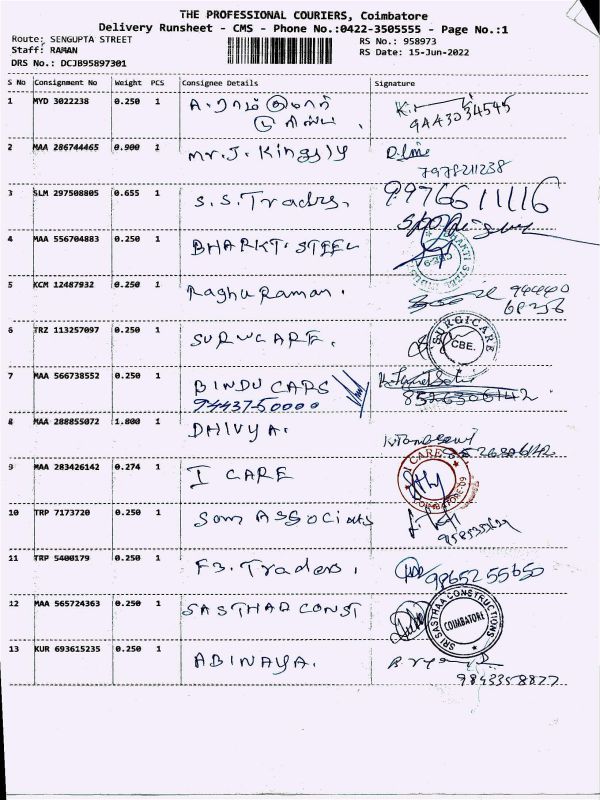 THE PROFESSIONAL COURIERS, Coimbatore
Delivery Runsheet - CMS - Phone No.:0422-3505555 - Page No.:1
Route: SENGUPTA STREET
Staff: RAMAN
DRS No.: DCJB95897301
RS No.: 958973
RS Date: 15-Jun-2022
S No Consignment No Weight PCS Consignee Details Signature
1 MYD 3022238 0.250 1 9443034545
2 MAA 286744465 0.900 1 Mr. J. Kingsly
7978211238
3 SLM 297508805 0.655 1 S.S. Traders. 9976611116
4 MAA 556704883 0.250 1 BHARKTI STEEL
5 KCM 12487932 0.250 1 Raghu Raman. 94440
6 TRZ 113257097 0.250 1 SURUCARE. SURGICARE CBE.
7 MAA 566738552 0.250 1 BINDU CARS
9443750000 8526306142
8 MAA 288855072 1.800 1 DHIVYA.
9 MAA 283426142 0.274 1 I CARE I CARE COIMBATORE-09
10 TRP 7173720 0.250 1 Som Associats
11 TRP 5400179 0.250 1 F3. Traders. 9865255650
12 MAA 565724363 0.250 1 SASTHAA CONST SRI SASTHAA CONSTRUCTIONS COIMBATORE
13 KUR 693615235 0.250 1 ABINAYA.
9843358827